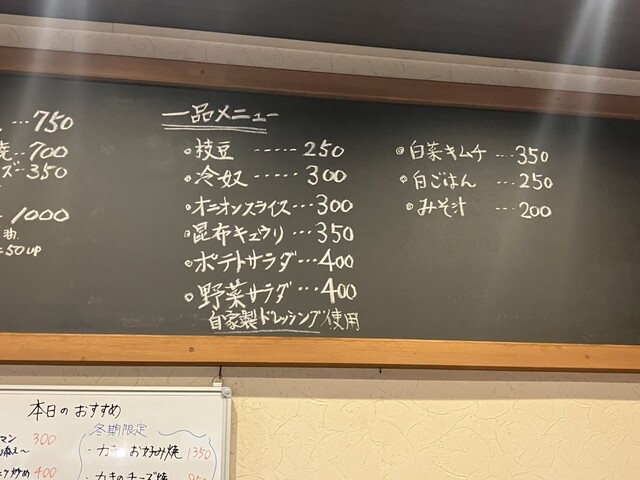 …750
焼…700
ズ…350
1000
油
50UP
一品メニュー
・枝豆 …… 250
・冷奴 …… 300
・オニオンスライス…300
・昆布キュウリ…350
・ポテトサラダ…400
・野菜サラダ…400
自家製ドレッシング使用
・白菜キムチ …350
・白ごはん …250
・みそ汁 …200
本日のおすすめ
マン 300
炒め 400
冬期限定
・カキ お好み焼 1350
・カキのチーズ焼